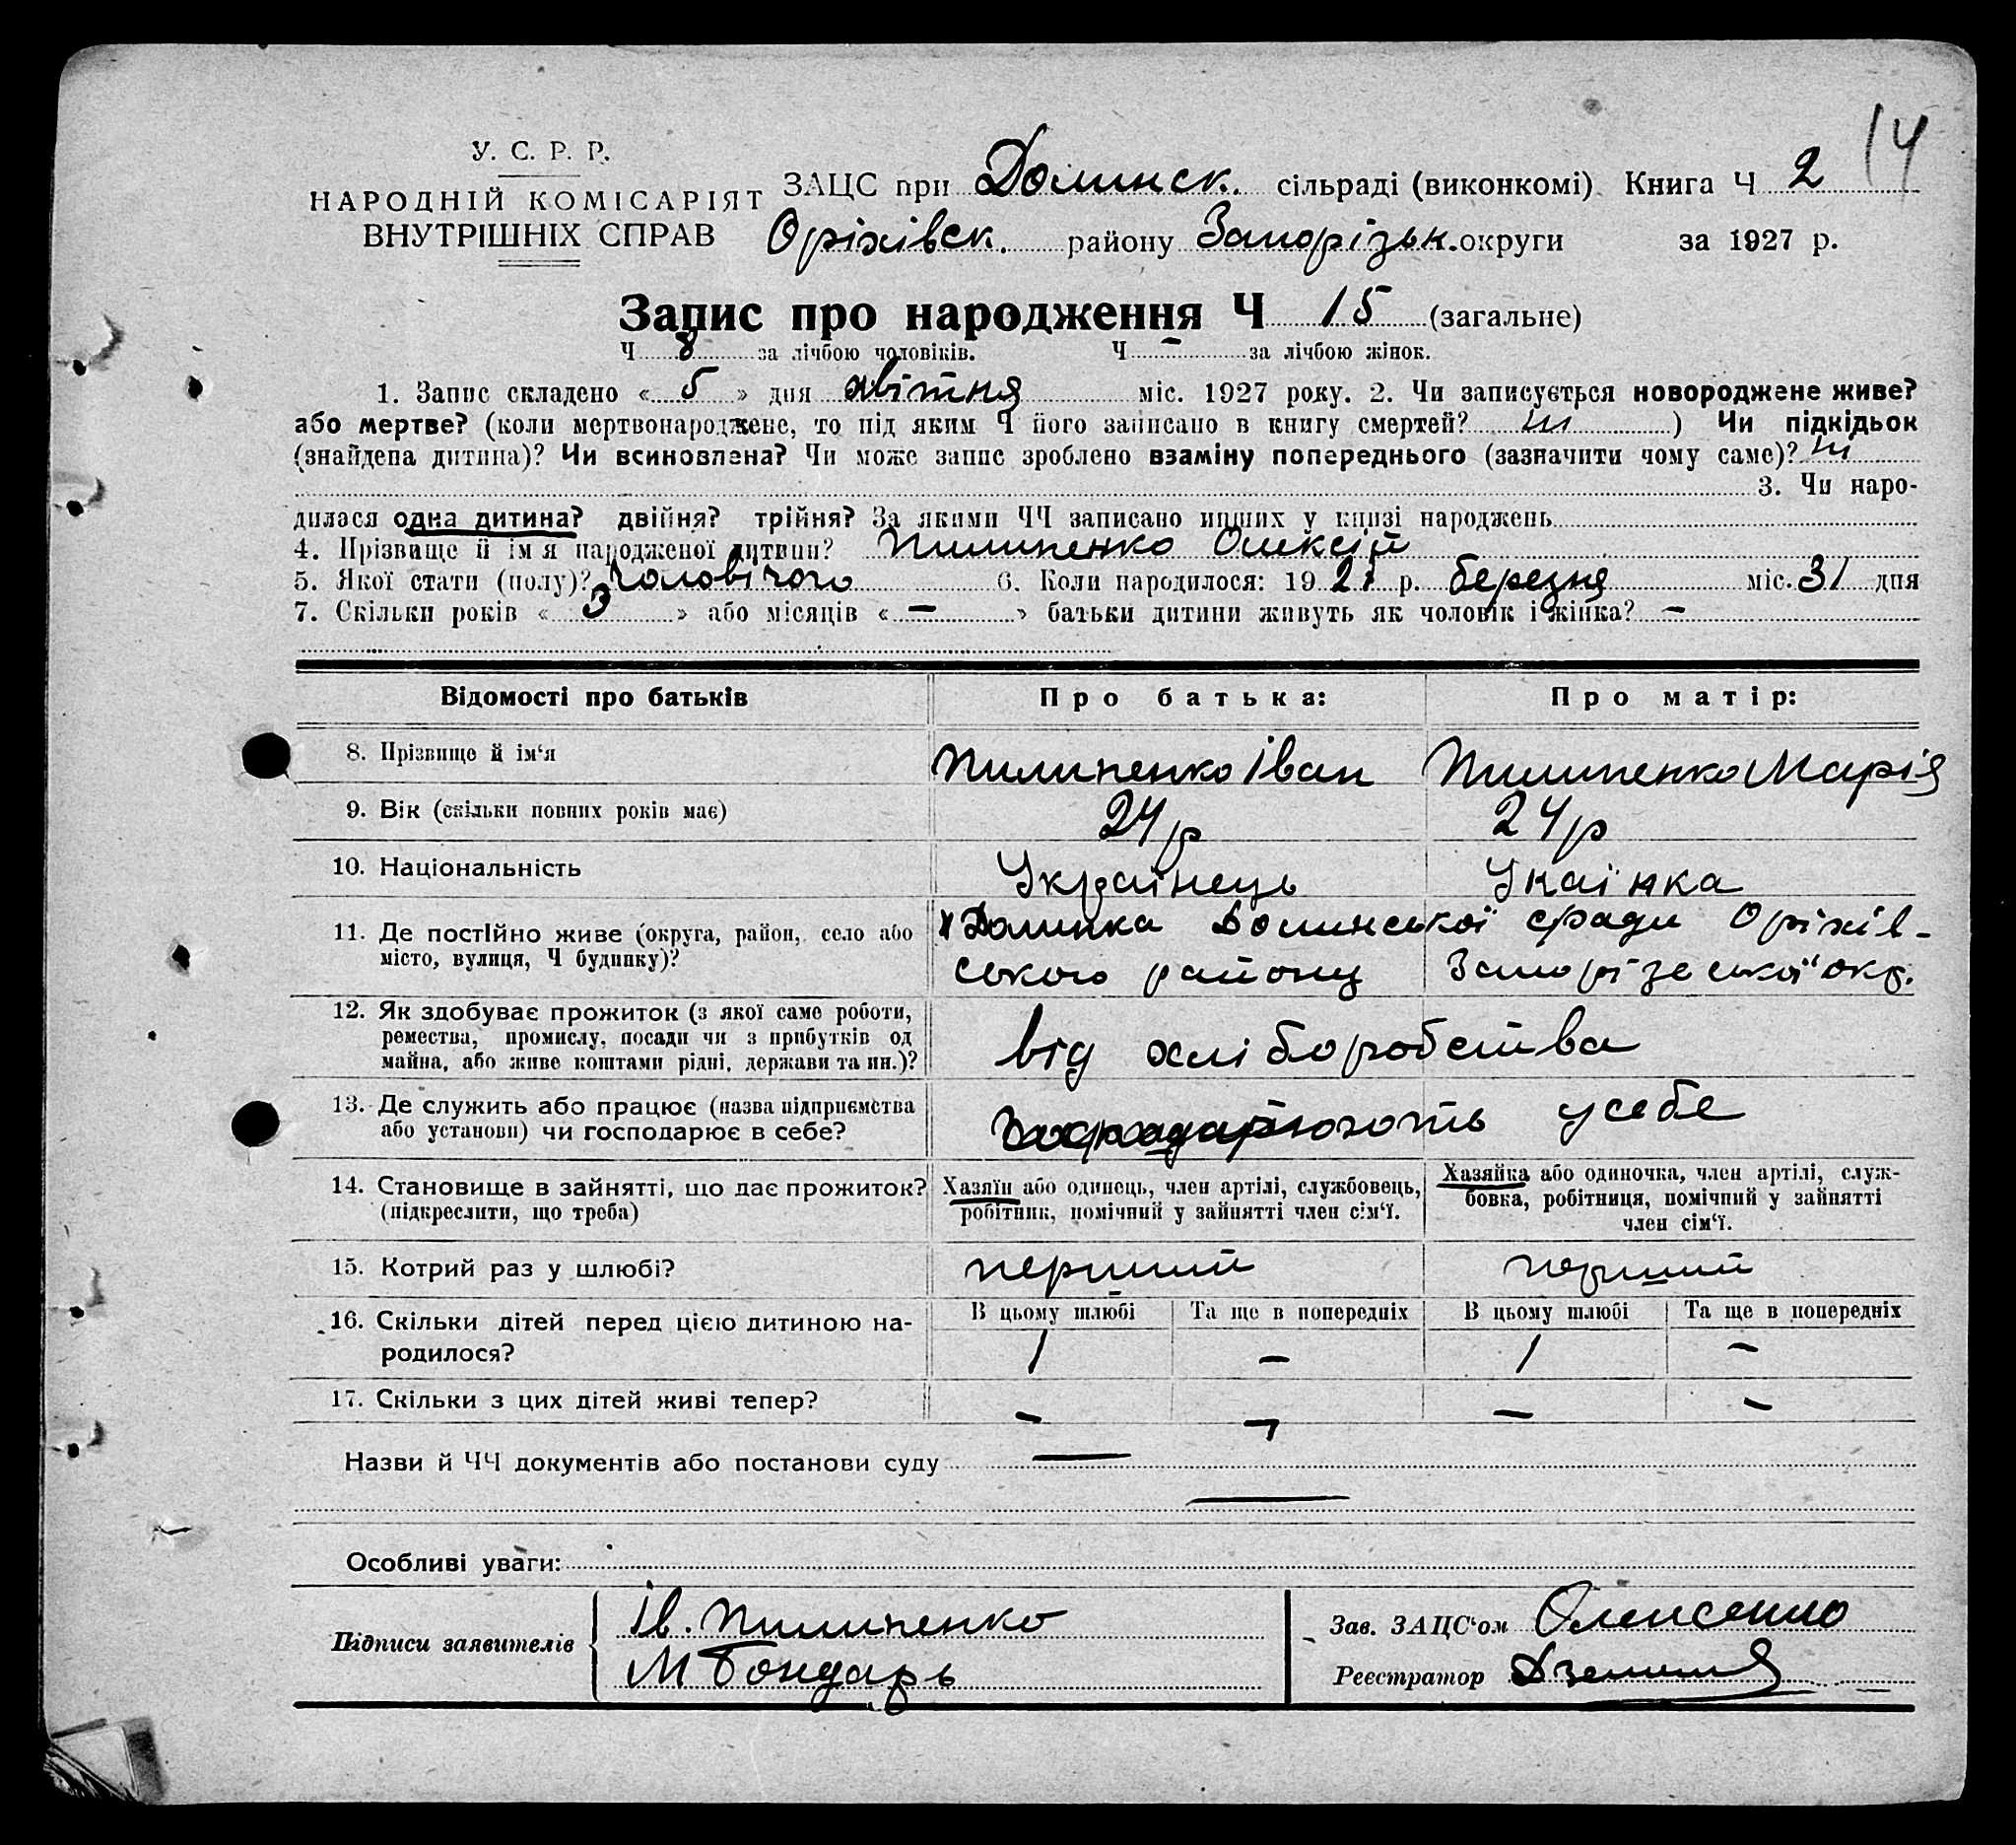 14
У. С. Р. Р.
НАРОДНІЙ КОМІСАРІЯТ
ВНУТРІШНІХ СПРАВ
ЗАЦС при Долинск. сільраді (виконкомі) Книга Ч 2
Оріхівск. району Запорізьк. округи за 1927 р.
Запис про народження Ч 15 (загальне)
Ч 8 за лічбою чоловіків. Ч – за лічбою жінок.
1. Запис складено « 5 » дня квітня міс. 1927 року. 2. Чи записується новороджене живе?
або мертве? (коли мертвонароджене, то під яким Ч його записано в книгу смертей? ні ) Чи підкідьок
(знайдена дитина)? Чи всиновлена? Чи може запис зроблено взаміну попереднього (зазначити чому саме)? ні
3. Чи наро-
дилася одна дитина? двійня? трійня? За якими ЧЧ записано инших у книзі народжень
4. Прізвище й ім'я народженої дитини? Пилипенко Олексій
5. Якої стати (полу)? чоловічого 6. Коли народилося: 1927 р. березня міс. 31 дня
7. Скільки років « 3 » або місяців « – » батьки дитини живуть як чоловік і жінка? –
Відомості про батьків Про батька: Про матір:
8. Прізвище й ім'я Пилипенко Іван Пилипенко Марія
9. Вік (скільки повних років має) 24 р 24 р
10. Національність Українець Укаінка
11. Де постійно живе (округа, район, село або Долинка Долинської с/ради Оріхів-
місто, вулиця, Ч будинку)? ського району Запорізької окр.
12. Як здобуває прожиток (з якої саме роботи,
ремества, промислу, посади чи з прибутків од від хліборобства
майна, або живе коштами рідні, держави та ин.)?
13. Де служить або працює (назва підприємства
або установи) чи господарює в себе? усебе
14. Становище в зайнятті, що дає прожиток? Хазяїн або одинець, член артілі, службовець, Хазяйка або одиночка, член артілі, служ-
(підкреслити, що треба) робітник, помічний у зайнятті член сім'ї. бовка, робітниця, помічний у зайнятті
член сім'ї.
15. Котрий раз у шлюбі? перший перший
16. Скільки дітей перед цією дитиною на- В цьому шлюбі Та ще в попередніх В цьому шлюбі Та ще в попередніх
родилося? 1 – 1 –
17. Скільки з цих дітей живі тепер? – – – –
Назви й ЧЧ документів або постанови суду —
—
Особливі уваги:
Підписи заявителів Ів. Пилипенко Зав. ЗАЦС'ом Олексенко
М Бондарь Реєстратор